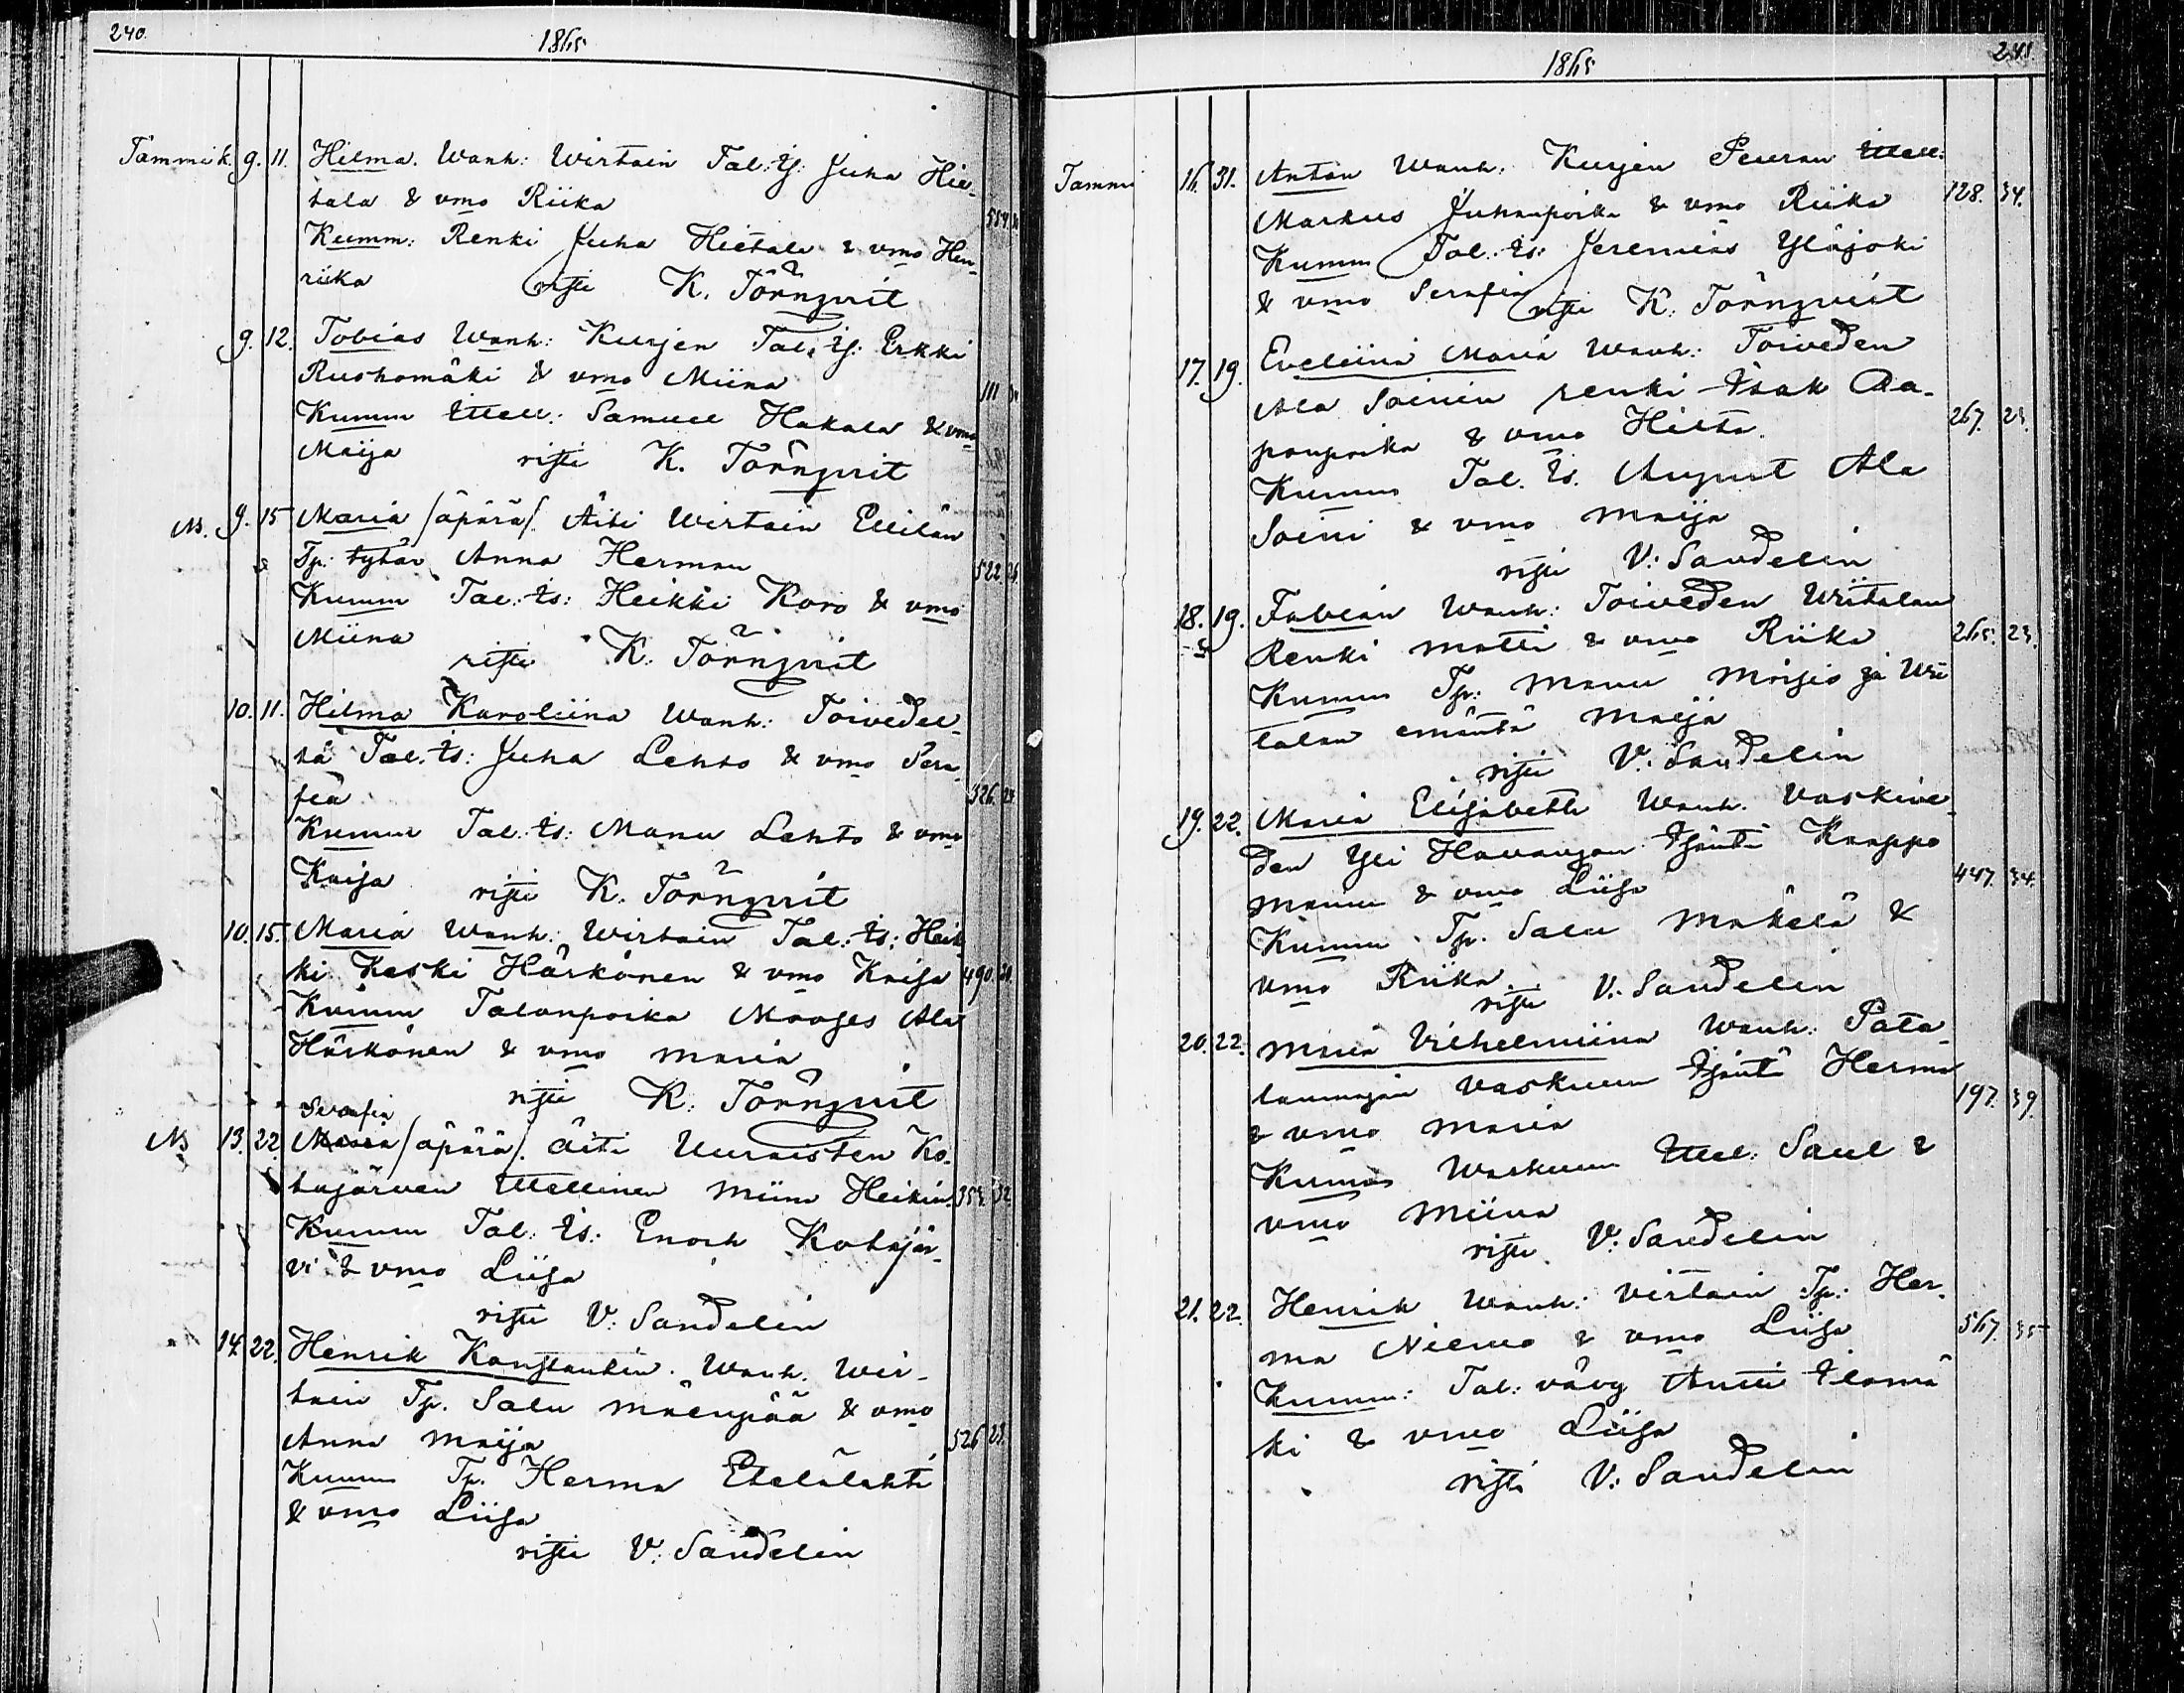 240.
1865
Tammik. 9. 11. Hilma. Wanh: Wirtain Tal: ts: Juha Hie-
tala & vmo Riika
Kumm: Renki Juha Hietala & vmo Hen-
riika risti K. Törnqvist
9. 12. Tobias Wanh: Kurjen Tal. ts: Erkki
Ruskomäki & vmo Miina 111
Kumm Ittell: Samuel Hakala & vmo
Maija risti K. Törnqvist
N. 9. 15 Maria /äpärä/. Äiti Wirtain Ellilän
Tp: tytär Anna Herman 522
Kumm Tal: ts: Heikki Koro & vmo
Miina
risti K. Törnqvist
10. 11. Hilma Karoliina Wanh: Toivedel-
tä Tal. ts: Juha Lehto & vmo Sera-
fia 326. 23
Kumm Tal: ts: Manu Lehto & vmo
Kaisa risti K. Törnqvist
10. 15. Maria Wanh: Wirtain Tal: ts: Heik
ki Keski Härkönen & vmo Kaisa 490.
Kumm Talonpoika Mooses Ala
Härkönen & vmo Maria
risti K. Törnqvist
Serafia
N 13. 22 Maria /äpärä/. äiti Uuraisten Ko-
tajärven Ittellinen Miina Heikin 353. 32
Kumm Tal: ts: Enoch Kotajär-
vi & vmo Liisa
risti V. Sandelin
14. 22. Henrik Konstantin. Wanh. Wir-
tain Tp. Salu Mäenpää & vmo
Anna Maija 526 23.
Kumm Tp. Herma Etelälahti
& vmo Liisa
risti V. Sandelin
241.
1865
Tammi 16. 31. Anton Wanh: Kurjen Peuran Ittell:
Markus Juhanpoika & vmo Riika 128. 34.
Kumm Tal. ts: Jeremias Yläjoki
& vmo Serafia risti K. Törnqvist
17. 19. Eveliina Maria Wanh: Toiveden
Ala Soinin renki Isak Aa-
ponpoika & vmo Hilta. 267. 23.
Kumm Tal. ts. August Ala
Soini & vmo Maija
risti V. Sandelin
18. 19. Fabian Wanh: Toiveden Uitalan
Renki Matti & vmo Riika 265. 23.
Kumm Tp: Manu Moisio ja Ui
talan emäntä Maija
risti V. Sandelin
19. 22. Maria Elisabeth Wanh. Vaskive
den Yli Havangan Isäntä Kaappo
Manu & vmo Liisa 447. 34.
Kumm Tp. Salu Mäkelä &
vmo Riika.
risti V. Sandelin
20. 22. Maria Vilhelmiina Wanh: Pata-
lanmajan Vaskuun Isäntä Herma
& vmo Maria 197. 39.
Kumm Waskuun Ittel: Saul &
vmo Miina
risti V. Sandelin
21. 22. Henrik Wanh: Virtain Tp: Her-
ma Niemo & vmo Liisa 567. 35
Kumm: Tal: vävy Antti Ilomä
ki & vmo Liisa
risti V. Sandelin